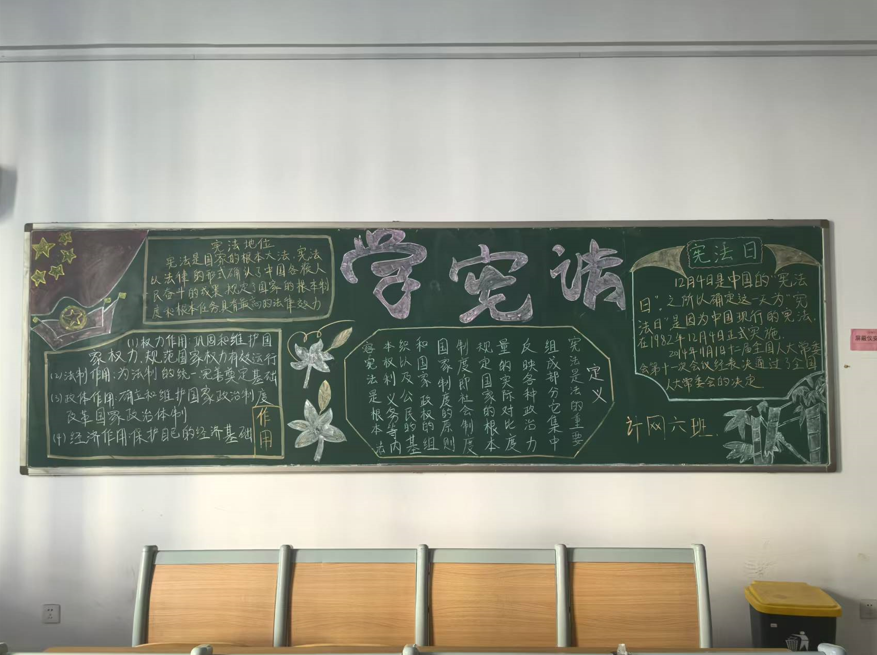 宪法地位
宪法是国家的根本大法,宪法
以法律的形式确认了中国各族人
民奋斗的成果,规定了国家的根本制
度和根本任务具有最高的法律效力
(1)权力作用:巩固和维护国
家权力,规范国家权力有效运行
(2)法制作用:为法制的统一完善奠定基础
(3)政体作用:确立和维护国家政治制度
改革国家政治体制
(4)经济作用:保护自己的经济基础
作用
学宪法
定义
宪法是法的重要
组成部分它集中
反映各种政治力
量的实际对比度
规定国家的根本
制度即社会制度
国家制度的原则
和国家政权的组
织以及公民的基
本权利义务等内
容宪法是根本法
宪法日
12月4日是中国的"宪法
日"。之所以确定这一天为"宪
法日"是因为中国现行的宪法,
在1982年12月4日正式实施,
2014年11月1日十二届全国人大常委
会第十一次会议经表决通过了全国
人大常委会的决定
计网六班